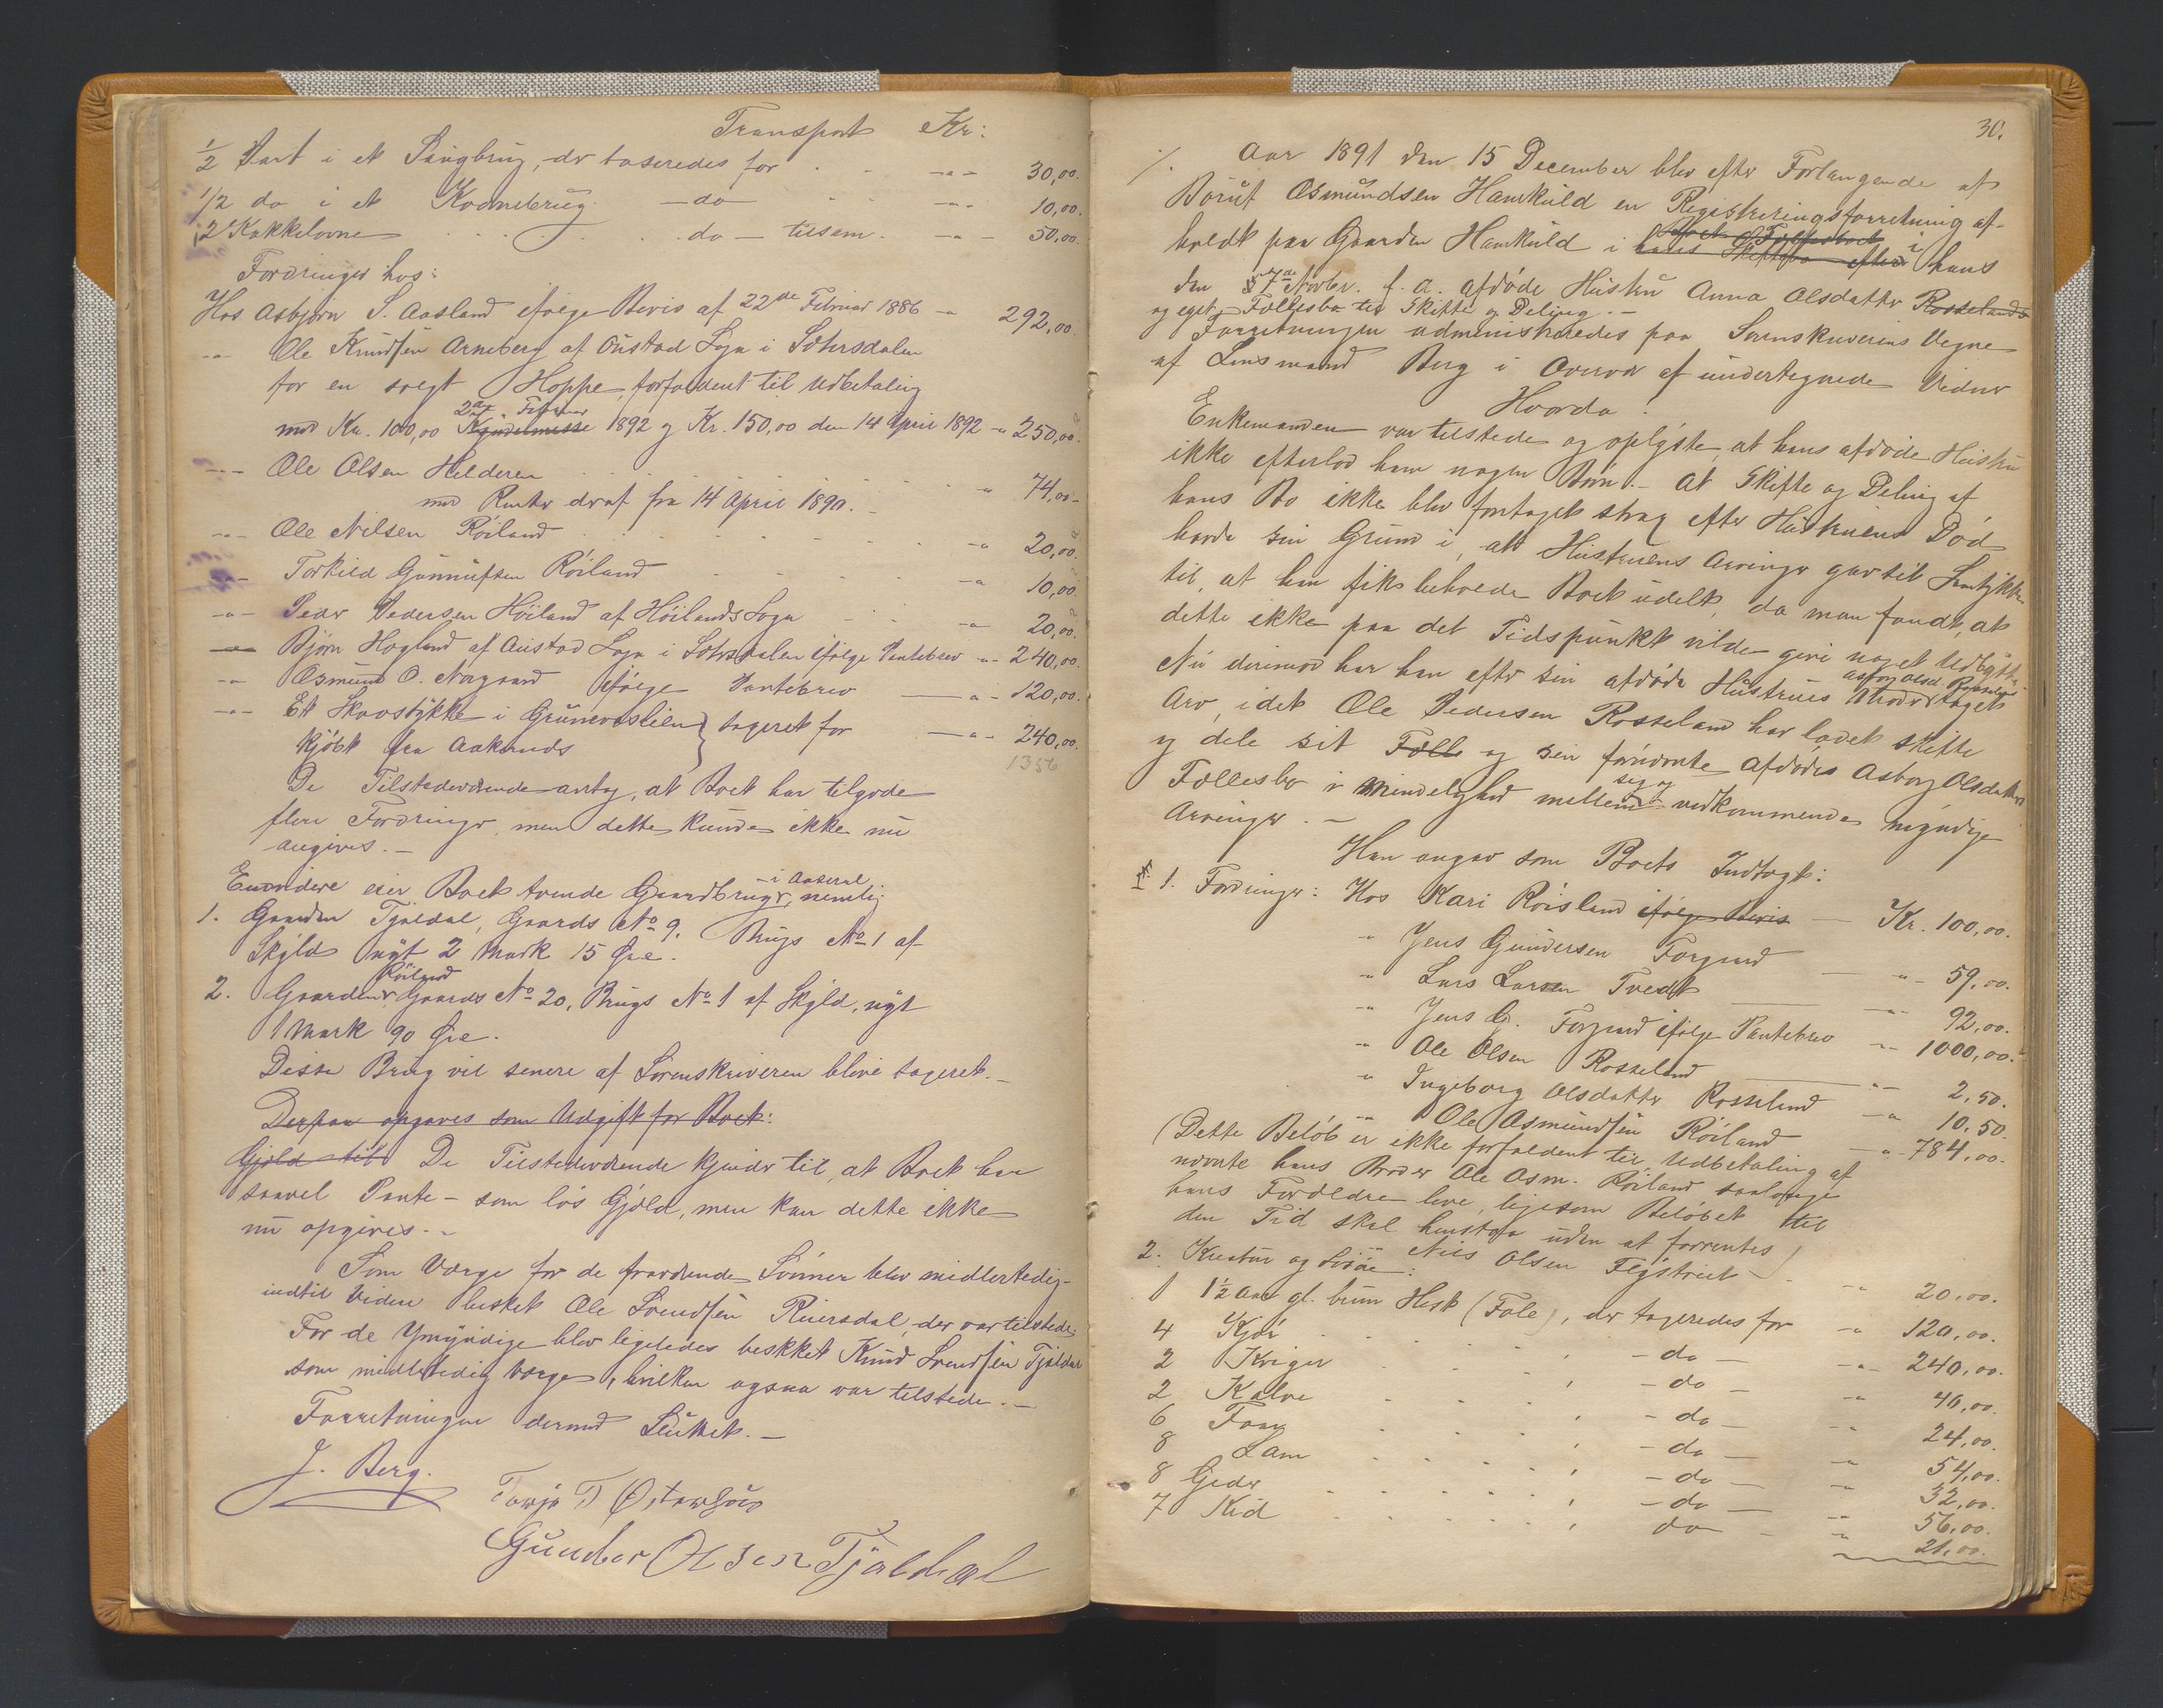 Transport Kr:
1/2 Part i et Saugbrug, der taxeredes for - " - 30,00.
1/2 do i et Kvernebrug - do - " - 10,00.
2 Kakkelovne do - tilsam. - " - 50,00.
Fordringer hos:
Hos Asbjørn S. Aasland ifølge Bevis af 22de Februar 1886 - " 292,00.
- " - Ole Knudsen Arneberg af Østad Sogn i Sætersdalen
for en solgt Hoppe, forfaldent til Udbetaling
med Kr. 100,00 Kyndelmesse 2den Februar 1892 og Kr. 150,00 den 14 April 1892 - " 250,00.
- " - Ole Olsen Helderen " 74,00 -
med Renter deraf fra 14 April 1890. -
- " - Ole Nilsen Røiland - " 20,00.
- " - Torkild Gunnufsen Røiland - " 10,00.
- " - Peder Pedersen Høiland af Høilands Sogn - " 20,00.
- " - Bjørn Hogland af Austad Sogn i Sætersdalen ifølge Pantebrev - " - 240,00.
- " Osmund O. Norgaard ifølge Pantebrev - " - 120,00.
- " - Et Skovstykke i Grunevaslien } taxeret for - " - 240,00.
kjøbt fra Aaknuds
1356
De Tilstedeværende antog, at Boet har tilgode
flere Fordringer, men dette kunde ikke nu
angives. -
Envidere eier Boet tvende Gaardbrug i Aaseral, nemlig
1. Gaarden Tjaldal, Gaards No 9. Brugs No 1 af
Skyld nyt 2 Mark 15 Øre.
2. Gaarden Røiland Gaards No 20, Brugs No 1 af Skyld, nyt
1 Mark 90 Øre.
Disse Brug vil senere af Sorenskriveren blive taxeret. -
Derpaa opgaves som Udgift for Boet:
Gjæld til De Tilstedeværende kjender til, at Boet har
saavel Pante- som løs Gjæld, men kan dette ikke
nu opgives. -
Som Værge for de fraværende Sønner blev midlertidig
indtil Videre beskket Ole Svendsen Ruersdal, der var tilstede;
For de Umyndige blev ligeledes beskket Knud Svendsen Tjaldal
som midlertidig Værge, hvilken ogsaa var tilstede. -
Forretningen dermed Sluttet. -
J. Berg.
Tarje T
Gunder Olsen Tjaldal
30.
Aar 1891 den 15 December blev efter Forlangende af
Børuf Osmundsen Hamkuld en Registreringsforretning af-
holdt paa Gaarden Hamkuld i hans Skiftebo efter hans
den 7de Novbr. f. a. afdøde Hustru Anna Olsdatter Rosselands
og eget Fællesbo til Skifte og Deling. -
Forretningen administreredes paa Sorenskriverens Vegne
af Lensmand Berg i Overvær af undertegnede Vidner
Hvorda:
Enkemanden var tilstede og oplyste, at hans afdøde Hustru
ikke efterlod ham nogen Børn. - At Skifte og Deling af
hans Bo ikke blev foretaget strax efter Hustruens Død
havde sin Grund i, at Hustruens Arvinger gav sit Samtykke
til, at han fik beholde Boet udelt, da man fandt, at
dette ikke paa det Tidspunkt vilde give noget Udbytte.
Nu derimod har han efter sin afdøde Hustrues Moder Asborg Olsd. Rosseland taget
Arv, idet Ole Pedersen Rosseland har ladet skifte
og dele sit Fælle og sin fornævnte afdøde Asborg Olsdatters
Fællesbo i Mindelighed mellem sig og vedkommende myndige
Arvinger. -
Han angav som Boets Indtægt:
1. Fordringer: Hos Kari Røisland ifølge Bevis - Kr. 100,00.
" Jens Gundersen Forgard - " - 59,00.
" Lars Larsen Tvedt - " - 92,00.
" Jens G. Forgard ifølge Pantebrev - " - 1000,00.
" Ole Olsen Rosseland - " - 2,50.
" Ingeborg Olsdatter Rosseland - " 10,50.
" Ole Asmundsen Røiland - " - 784,00.
(Dette Beløb er ikke forfaldent til Udbetaling af
nævnte hans Broder Ole Asm. Røiland saalænge
hans Forældre leve, ligesom Beløbet til
den Tid skal henstaa uden at forrentes)
" Nils Olsen - " 20,00.
2. Kreatur og Løsøre:
1 1½ Aar gl. brun Hest (Fole), der taxeredes for - " 120,00.
4 Kjør - do - - " - 240,00.
2 Kviger - do - " 40,00.
2 Kalve - do - - " 24,00.
6 Faar - do - " 54,00.
8 Lam - do - " 32,00.
8 Geder - do - " 56,00.
7 Kid do - " 21,00.